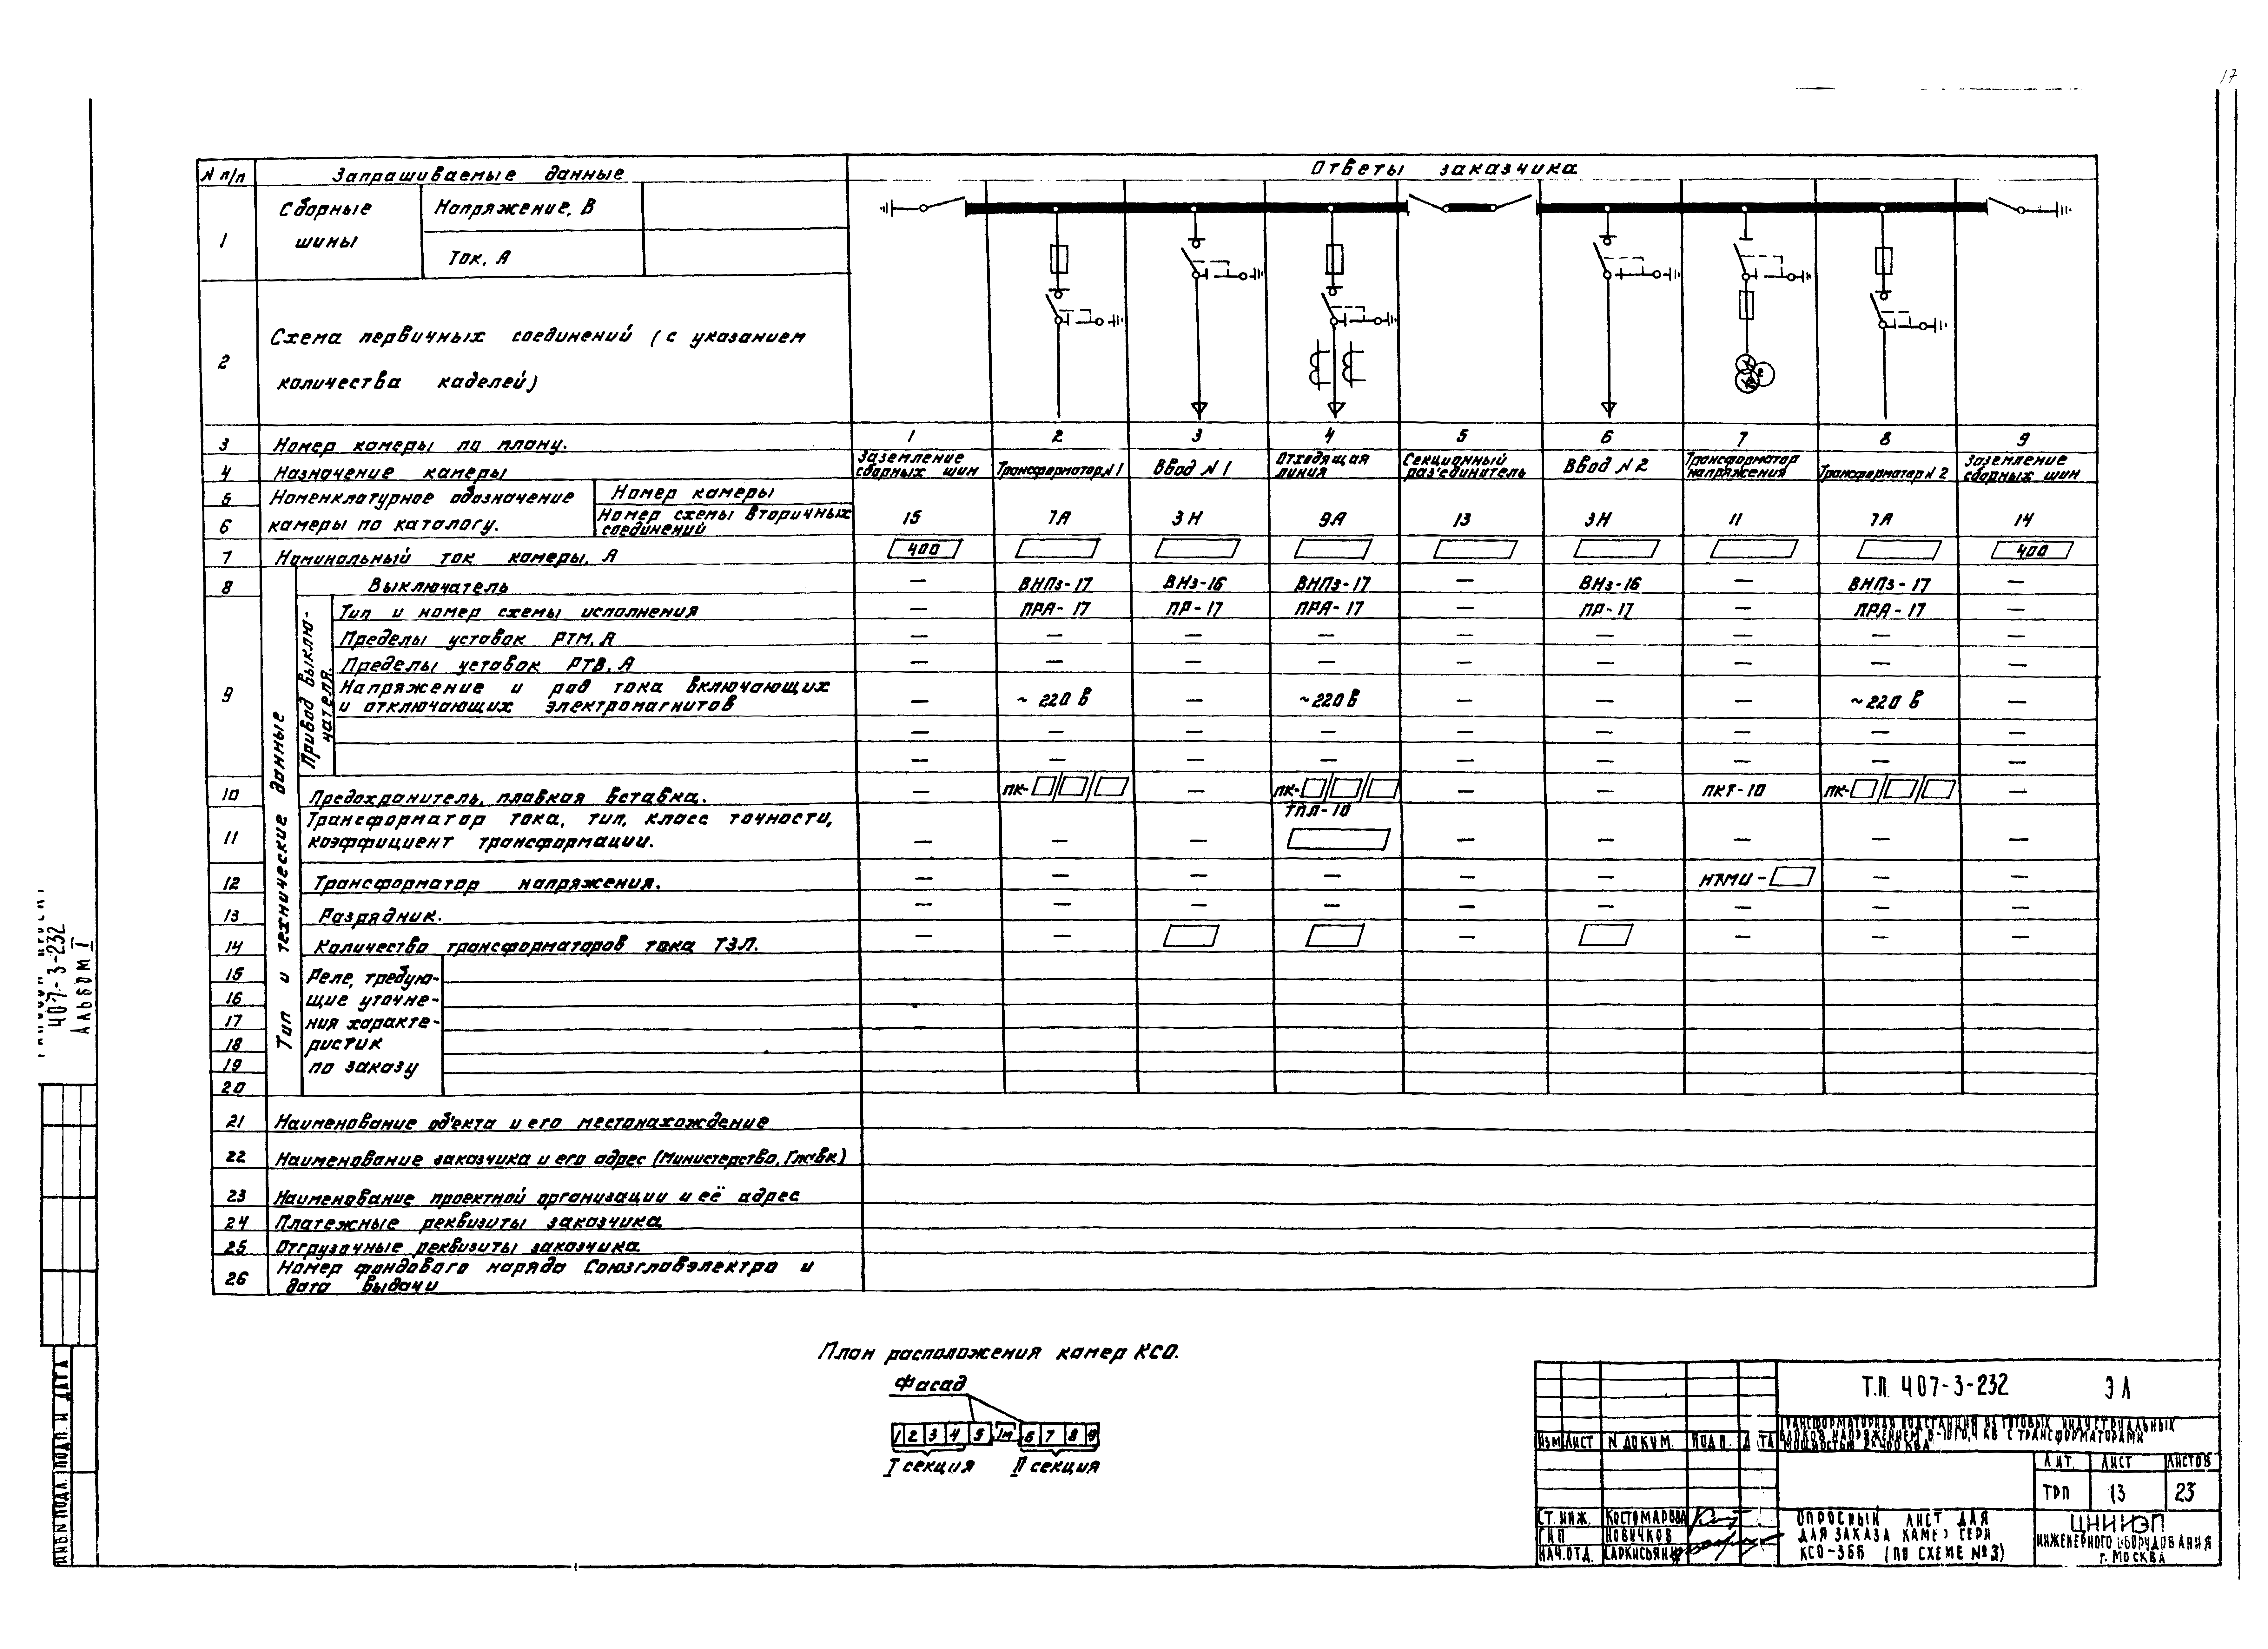 17
N п/п Запрашиваемые данные Ответы заказчика
1 Сборные шины Напряжение, В
Ток, А
2 Схема первичных соединений (с указанием
количества каделей)
3 Номер камеры по плану. 1 2 3 4 5 6 7 8 9
4 Назначение камеры Заземление сборных шин Трансформатор N 1 Ввод N 1 Отходящая линия Секционный раз'единитель Ввод N 2 Трансформатор напряжения Трансформатор N 2 Заземление сборных шин
5 Номенклатурное обозначение Номер камеры
6 камеры по каталогу. Номер схемы вторичных соединений 15 7А 3Н 9А 13 3Н 11 7А 14
7 Номинальный ток камеры, А 400 400
Тип и технические данные
8 Выключатель — ВНПз-17 ВНз-16 ВНПз-17 — ВНз-16 — ВНПз-17 —
9 Привод выключателя.
Тип и номер схемы исполнения — ПРА-17 ПР-17 ПРА-17 — ПР-17 — ПРА-17 —
Пределы уставок РТМ, А — — — — — — — — —
Пределы уставок РТВ, А — — — — — — — — —
Напряжение и род тока включающих
и отключающих электромагнитов — ~ 220 В — ~220 В — — — ~220 В —
— — — — — — — — —
— — — — — — — — —
10 Предохранитель, плавкая вставка. — ПК- / / — ПК- / / — — ПКТ-10 ПК- / / —
11 Трансформатор тока, тип, класс точности,
коэффициент трансформации. — — — ТПЛ-10 — — — — —
12 Трансформатор напряжения. — — — — — — НТМИ- — —
13 Разрядник. — — — — — — — — —
14 Количество трансформаторов тока ТЗЛ. — — — — — —
15 Реле, требую-
16 щие уточне-
17 ния характе-
18 ристик
19 по заказу
20
21 Наименование об'екта и его местонахождение
22 Наименование заказчика и его адрес (Министерство, Главк)
23 Наименование проектной организации и её адрес
24 Платежные реквизиты заказчика
25 Отгрузочные реквизиты заказчика
26 Номер фондового наряда Союзглавэлектро и
дата выдачи
План расположения камер КСО.
Фасад
1 2 3 4 5 6 7 8 9
I секция II секция
407-3-232
АЛЬБОМ I
ИНВ.N ПОДЛ. ПОДП. И ДАТА
Т.П. 407-3-232 ЭЛ
ТРАНСФОРМАТОРНАЯ ПОДСТАНЦИЯ ИЗ ГОТОВЫХ ИНДУСТРИАЛЬНЫХ
БЛОКОВ НАПРЯЖЕНИЕМ С ТРАНСФОРМАТОРАМИ
МОЩНОСТЬЮ 2×400 КВА
ИЗМ ЛИСТ N ДОКУМ. ПОДП.
ЛИТ. ЛИСТ ЛИСТОВ
ТРП 13 23
СТ. ИНЖ. КОСТОМАРОВА
ГИП НОВИЧКОВ
НАЧ.ОТД. САРКИСЬЯНЦ
ОПРОСНЫЙ ЛИСТ ДЛЯ
ДЛЯ ЗАКАЗА КАМЕР СЕРИ
КСО-366 (ПО СХЕМЕ №3)
ЦНИИЭП
ИНЖЕНЕРНОГО ОБОРУДОВАНИЯ
Г. МОСКВА